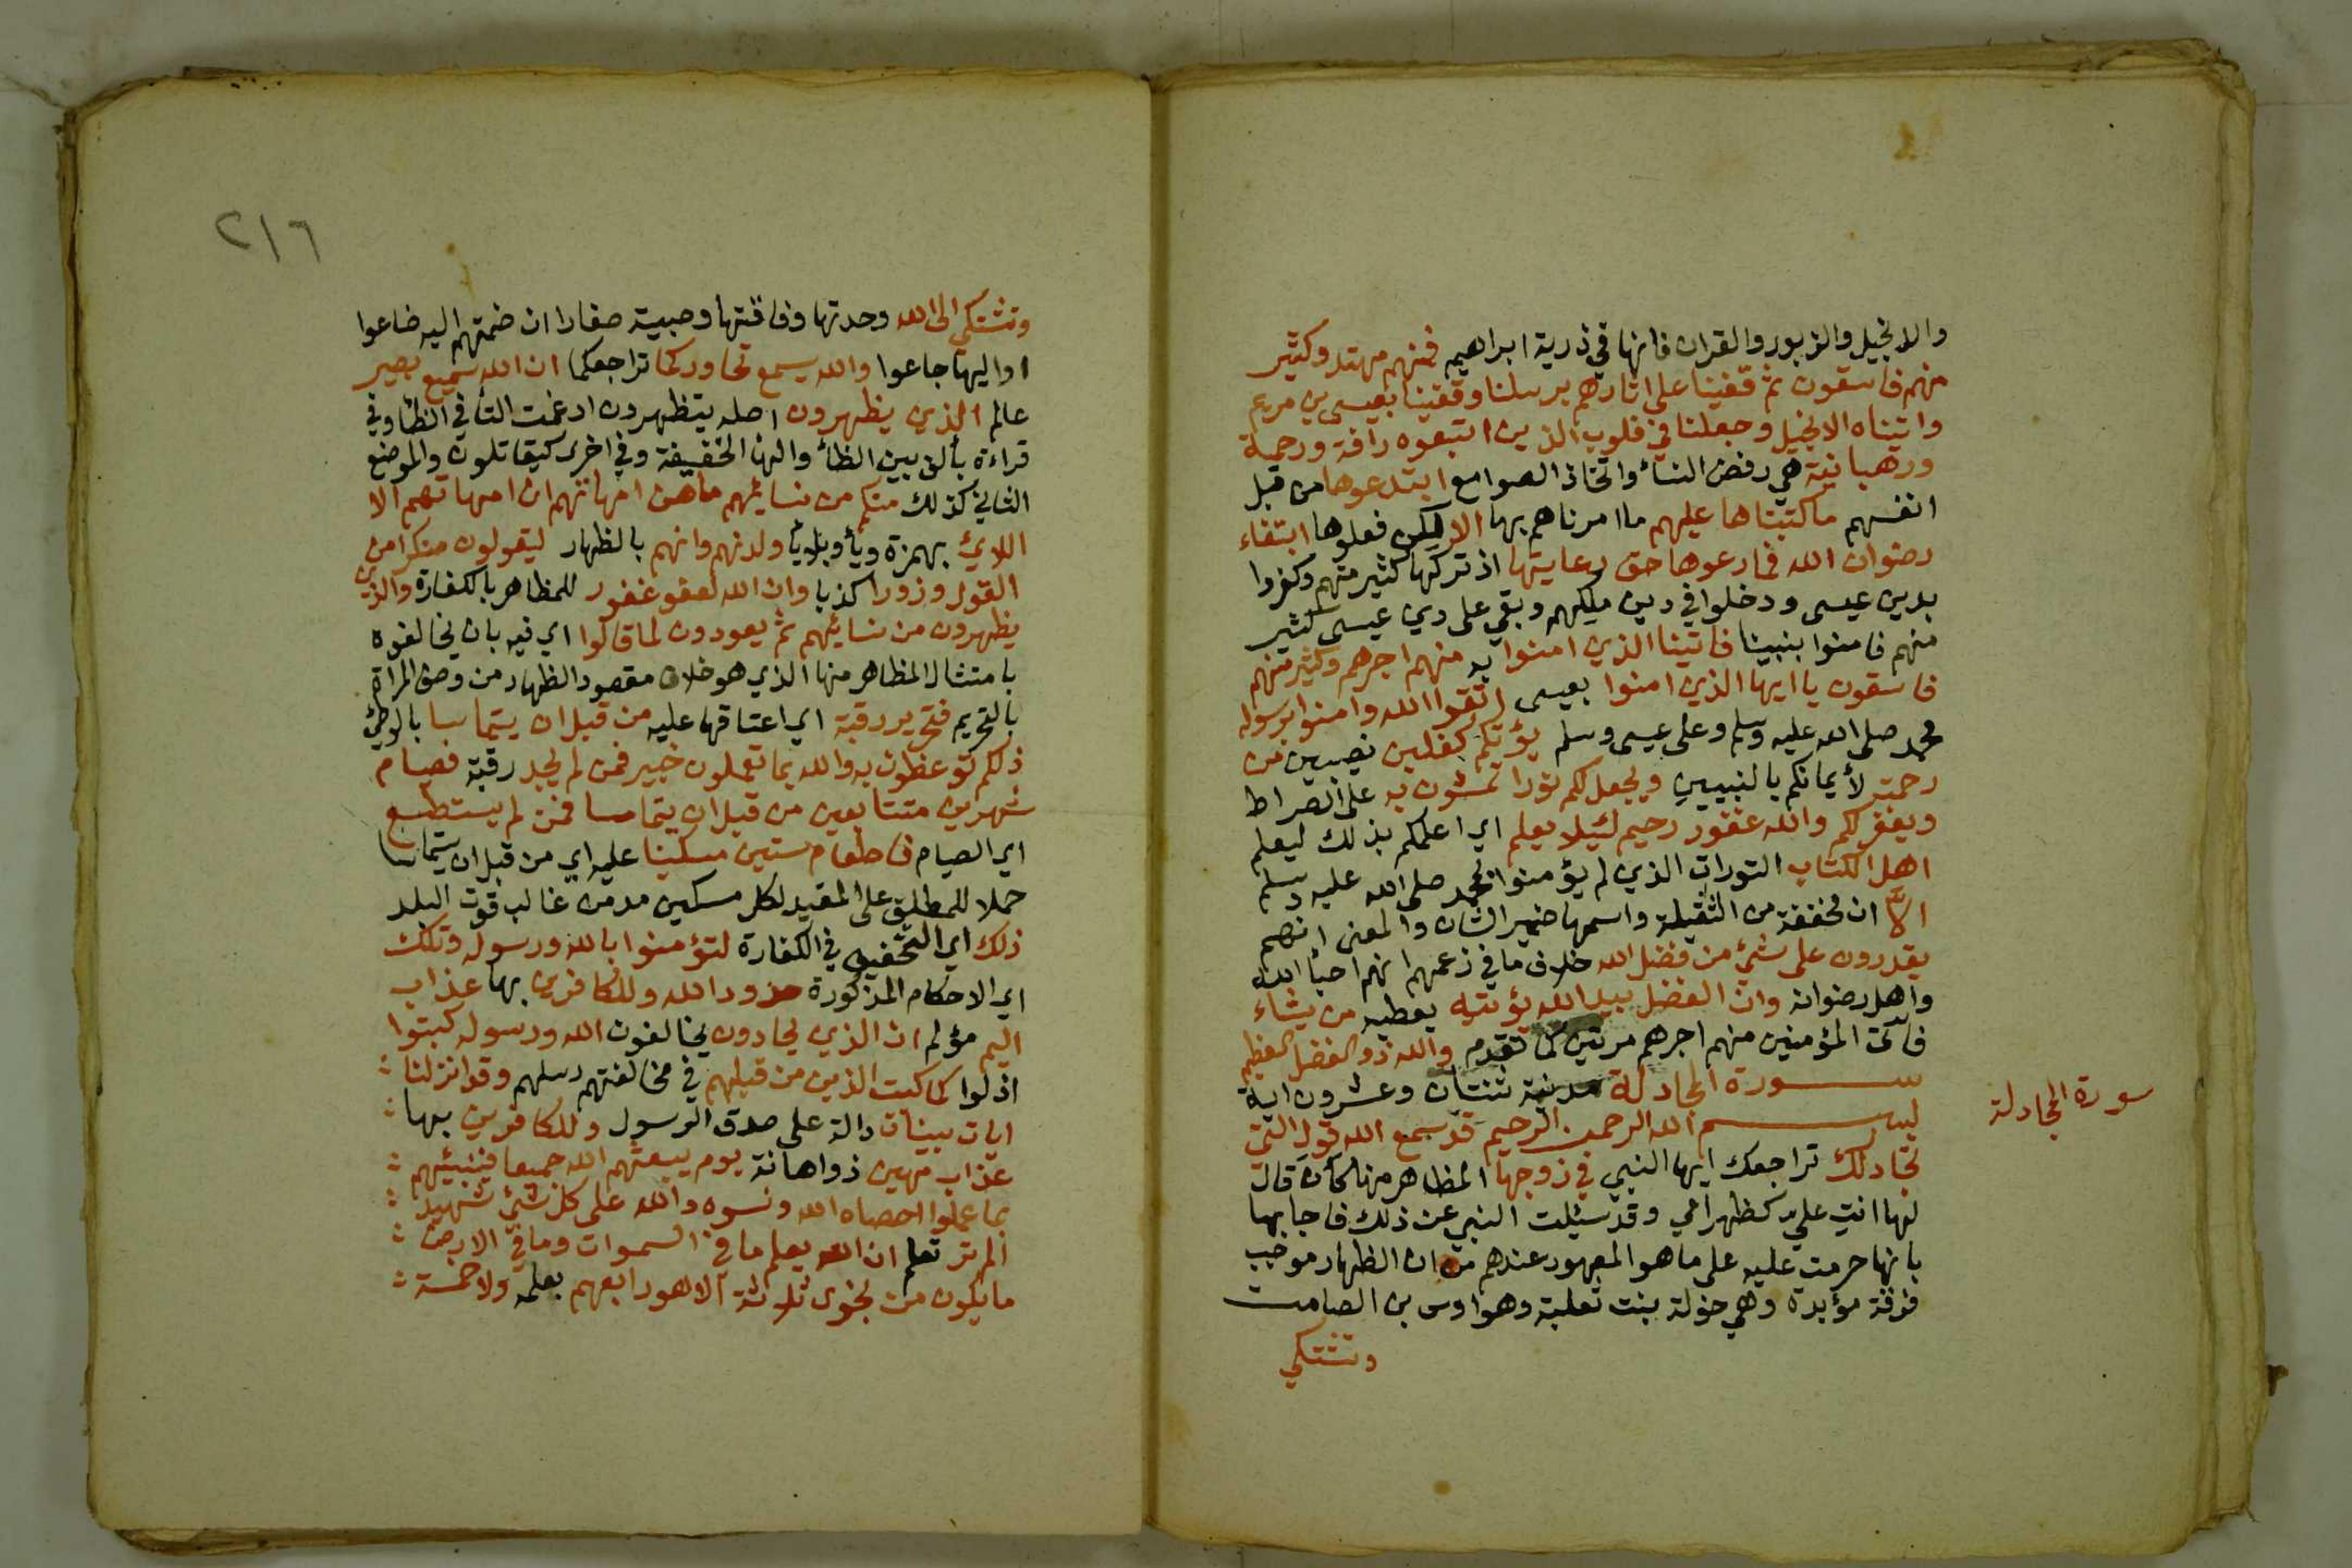 والانجيل والزبور والقران فانها في ذرية ابراهيم فمنهم مهتد وكثير
منهم فاسقون ثم قفينا على اثارهم برسلنا وقفينا بعيسى بن مريم
واتيناه الانجيل وجعلنا في قلوب الذين اتبعوه رافة ورحمة
ورهبانية هي رفض النسأ واتخاذ الصوامع ابتدعوها من قبل
انفسهم ما كتبناها عليهم ما امرناهم بها الا لكن فعلوها ابتغاء
رضوان الله فمارعوها حق رعايتها اذ تركها كثير منهم وكفروا
بدين عيسى ودخلوا في دين ملكهم وبقي على دين عيسى كثير
منهم فامنوا بنبينا فاتينا الذين امنوا به منهم اجرهم وكثير منهم
فاسقون يا ايها الذين امنوا بعيسى اتقوا الله وامنوا برسوله
محمد صلى الله عليه وسلم وعلى عيسى وسلم يؤتكم كفلين نصيبين من
رحمته لأيمانكم بالنبيين ويجعل لكم نورا تمشون به على الصراط
ويغفر لكم والله غفور رحيم لئيلا يعلم اي اعلمكم بذلك ليعلم
اهل الكتاب التورات الذين لم يؤمنوا بمحمد صلى الله عليه وسلم
الاّ ان مخففة من الثقيلة واسمها ضمير الشان والمعنى انهم
يقدرون على شئ من فضل الله خلاف ما في زعمهم انهم احبأ الله
واهل رضوانه وان الفضل بيد الله يؤتيه يعطيه من يشاء
فاتى المؤمنين منهم اجرهم مرتين كما تقدم والله ذو الفضل العظيم
ســورة المجادلة مدنية ثنتان وعشرون اية
بســم الله الرحمن الرحيم قد سمع الله قول التي
تجادلك تراجعك ايها النبي في زوجها المظاهر منها كان قال
لها انتِ عليّ كظهر امي وقد سئلت النبي عن ذلك فاجابها
بانها حرمت عليه على ما هو المعهود عندهم من ان الظهار موجب
فرقة مؤبدة وهي خولة بنت ثعلبة وهو اوس بن الصامت
وتشتكي
سورة المجادلة
٢١٦
وتشتكي الى الله وحدتها وفاقتها وصبية صغارا ان ضمتهم اليه ضاعوا
او اليها جاعوا والله يسمع تحاوركما تراجعكما ان الله سميع بصير
عالم الذين يظهرون اصله يتظهرون ادغمت التأ في الظأ وفي
قراءة بألف بين الظأ والهأ الخفيفة وفي اخرى كيقاتلون والموضع
الثاني كذلك منكم من نسايهم ماهن امهاتهم ان امهاتهم الا
اللايئ بهمزة ويأ وبلا يأ ولدنهم وانهم بالظهار ليقولون منكرا من
القول وزورا كذبا وان الله لعفو غفور للمظاهر بالكفارة والذين
يظهرون من نسايهم ثم يعودون لما قالوا اي فيه بان يخالفوه
بامتثال المظاهر منها الذي هو خلاف مقصود الظهار من وصف المراة
بالتحريم فتحرير رقبة اي اعتاقها عليه من قبل ان يتماسا بالوطئ
ذلكم توعظون به والله بما تعملون خبير فمن لم يجد رقبة فصيام
شهرين متتابعين من قبل ان يتماسا فمن لم يستطع
اي الصيام فاطعام ستين مسكينا عليه اي من قبل ان يتماسا
حملا للمطلق على المقيد لكل مسكين مد من غالب قوت البلد
ذلك اي التخفيف في الكفارة لتؤمنوا بالله ورسوله وتلك
اي الاحكام المذكورة حدود الله وللكافرين بها عذاب
اليم مؤلم ان الذين يحادون يخالفون الله ورسوله كبتوا
اذلوا كما كبت الذين من قبلهم في مخالفتهم رسلهم وقد انزلنا
ايات بينات دالة على صدق الرسول وللكافرين بها
عذاب مهين ذو اهانة يوم يبعثهم الله جميعا فينبئهم
بما عملوا احصاه الله ونسوه والله على كل شئ شهيد
الم تر تعلم ان الله يعلم ما في السموات وما في الارض
ما يكون من نجوى ثلاثة الا هو رابعهم بعلمه ولا خمسة